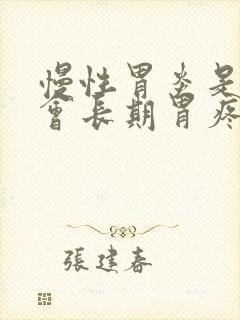 慢性胃炎是
會長期胃疼
張建春